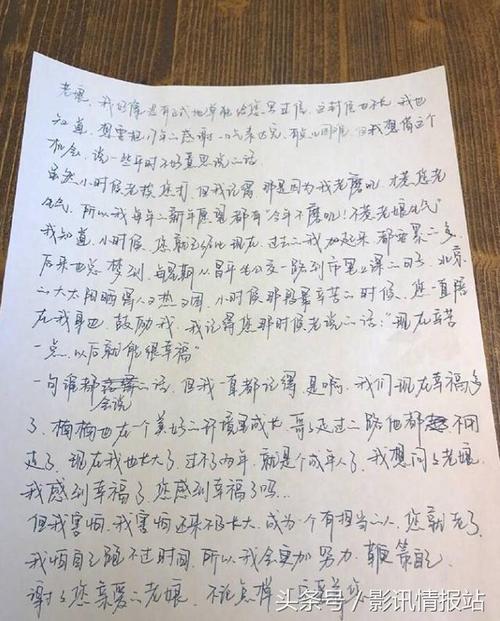 老娘，我好像没有正式地单独给您写过信，这封信也长，我也
知道，想要把17年的感谢一口气表达完，有点困难，但我想借这个
机会，说一些平时不好意思说的话。
虽然小时候老挨您打，但我记得那是因为我老磨叽，才惹您老
生气，所以我每年的新年愿望都有“今年不磨叽！不惹老娘生气”
我知道，小时候，您就已经比现在、过去的我加起来都要累的多。
后来也总梦到，每星期从昌平坐公交一路到市里上课的日子，北京
的大太阳晒得人又热又困，小时候那段最辛苦的时候，您一直陪
在我身边，鼓励我，我记得您那时候老说的话：“现在辛苦
一点，以后就能很幸福”
一句谁都会说的话，但我一直都记得，是啊，我们现在幸福多
了，楠楠也在一个美好的环境里成长，哥走过的路他都不用
走了，现在我也长大了，过不了两年，就是个成年人了，我想问问老娘，
我感到幸福了，您感到幸福了吗..
但我害怕，我害怕还来不及长大，成为一个有担当的人，您就老了，
我怕自己跑不过时间，所以我会更加努力，鞭策自己
谢谢您亲爱的老娘，不论怎样，一定要
头条号/影讯情报站